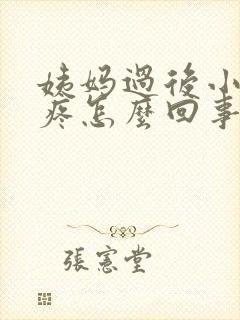 姨妈過後小
疼怎麼回事
張憲堂